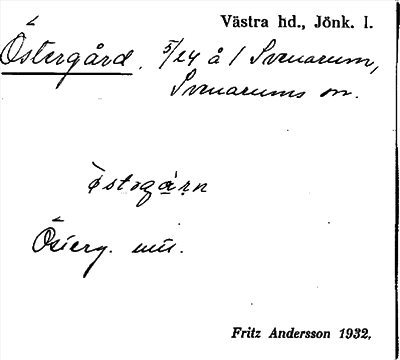 Västra hd., Jönk. l.
Östergård. 5/24 å 1 Svenarum,
Svenarums sn.
östəgàṛn
Österg.
Fritz Andersson 1932.